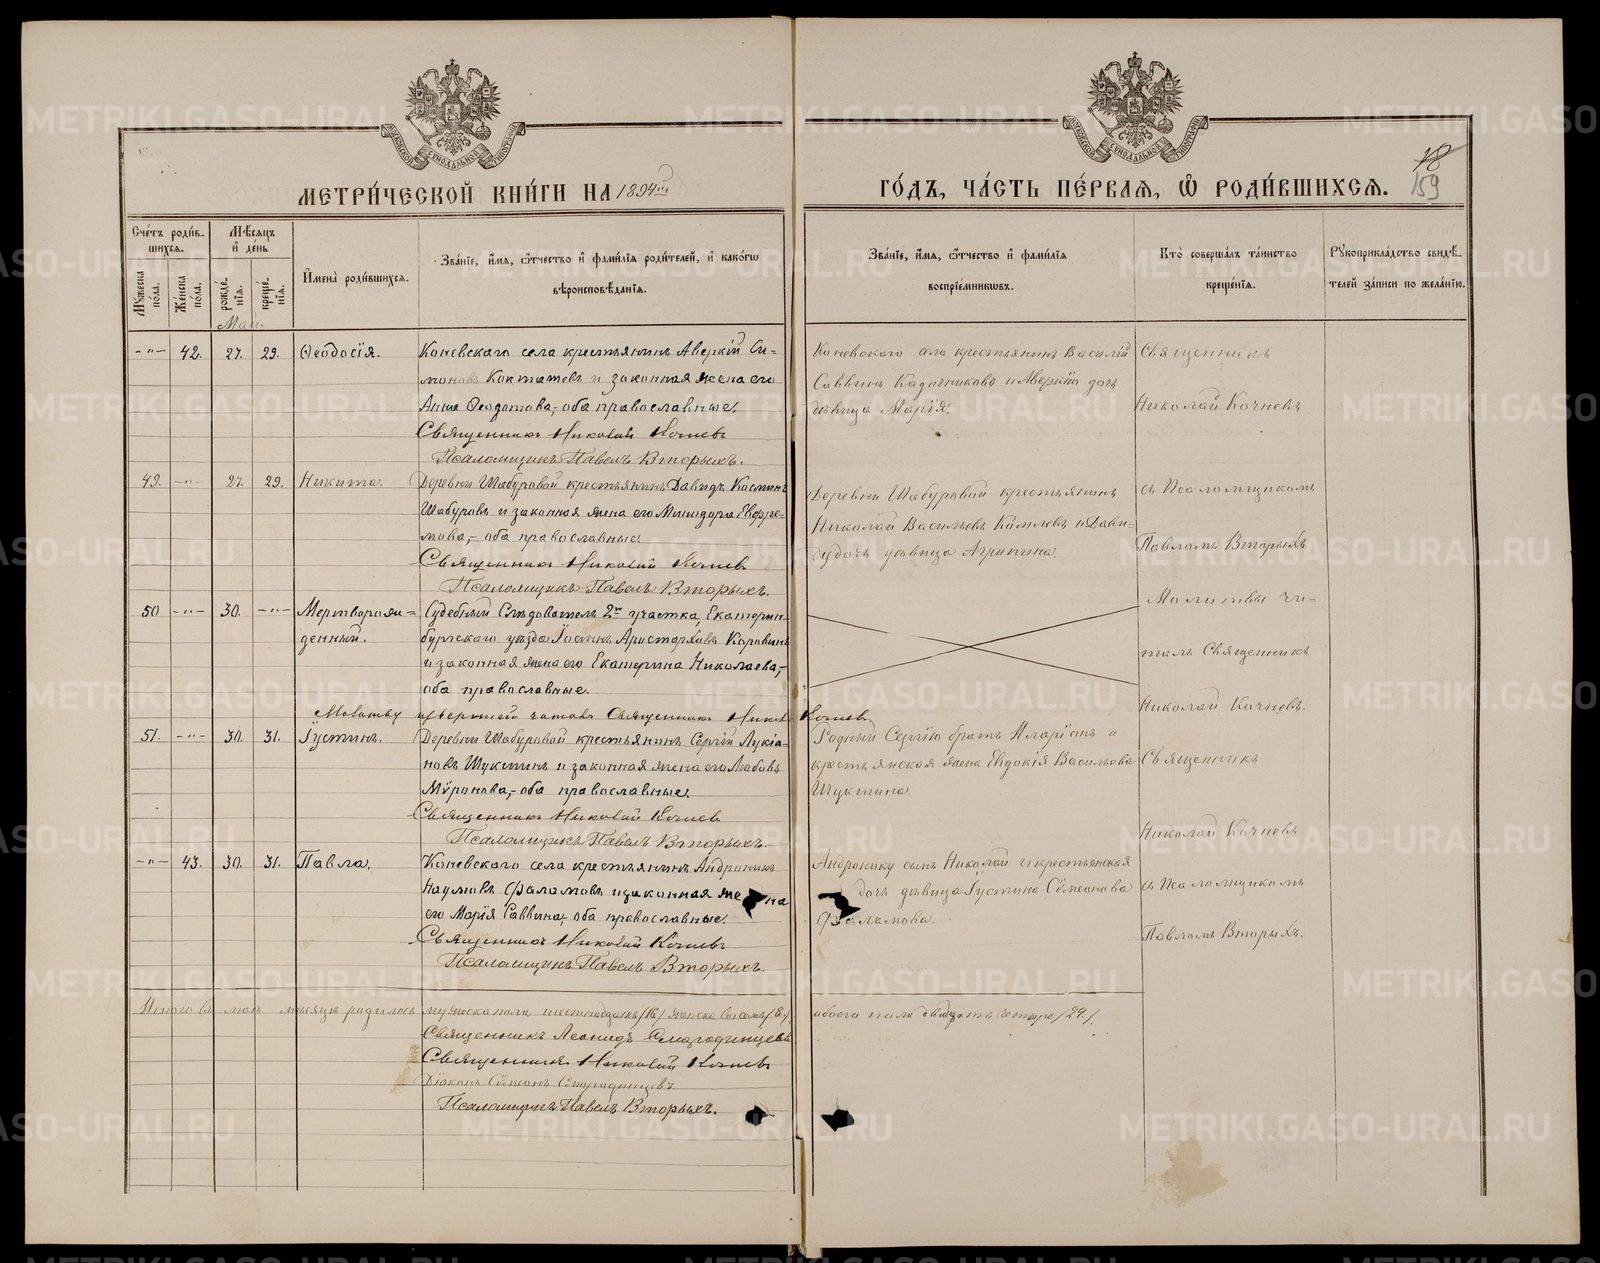 18
159
МЕТРИ́ЧЕСКОЙ КНИ́ГИ НА 1894й
ГО́ДЪ, ЧА́СТЬ ПЕ́РВАЯ, Ѡ҆ РОДИ́ВШИХСЯ.
Сче́тъ роди́в-
шихся.
Мѣ́сяцъ
и҆ де́нь
Му́жеска по́ла.
Же́нска по́ла.
рожде́нїя.
креще́нїя.
И҆мена̀ роди́вшихся.
Зва́нїе, и҆́мя, ѻ҆́тчество и҆ фами́лїя роди́телей, и҆ како́гѡ
вѣроисповѣ́данїя.
Зва́нїе, и҆́мя, ѻ҆́тчество и҆ фами́лїя
воспрїе́мниковъ.
Кто̀ соверша́лъ та́инство
креще́нїя.
Рꙋкоприкла́дство свидѣ́-
телей за́писи по жела́нїю.
Май.
-"- 42. 27. 29. Ѳеодосія. Коневскаго села крестьянинъ Аверкій Си-
моновъ Кокташевъ и законная жена его
Анна Ѳеодотова,- оба православные.
Священникъ Николай Кочневъ
Псаломщикъ Павелъ Вторыхъ.
Коневскаго села крестьянинъ Василій
Саввинъ Кадочниковъ и Аверкію дочь
дѣвица Марія.
Священникъ
Николай Кочневъ
49. -"- 27. 29. Никита. Деревни Шабуровой крестьянинъ Давидъ Косминъ
Шабуровъ и законная жена его Минодора Евфре-
мова,- оба православные.
Священникъ Николай Кочневъ
Псаломщикъ Павелъ Вторыхъ.
Деревни Шабуровой крестьянинъ
Николай Васильевъ и Дави-
ду дочь дѣвица Агрипина.
съ Псаломщикомъ
Павломъ Вторыхъ
50 -"- 30. -"- Мертворож-
денный.
Судебный Слѣдователь 2го участка, Екатерин-
бургскаго уѣзда Іоаннъ Аристарховъ Коровинъ
и законная жена его Екатерина Николаева,-
оба православные.
Молитву читалъ Священникъ Николай Кочневъ
Молитвы чи-
талъ Священникъ
Николай Кочневъ.
51. -"- 30. 31. Іустинъ. Деревни Шабуровой крестьянинъ Сергій Лукіа-
новъ Шукшинъ и законная жена его Любовь
Мѵронова,- оба православные.
Священникъ Николай Кочневъ
Псаломщикъ Павелъ Вторыхъ.
Родный Сергію братъ Иларіонъ и
крестьянская жена Евдокія Васильева
Шукшина.
Священникъ
Николай Кочневъ
-"- 43. 30. 31. Павла. Коневскаго села крестьянинъ Андроникъ
Наумовъ Фаламовъ и законная жена
его Марія Саввина,- оба православные.
Священникъ Николай Кочневъ
Псаломщикъ Павелъ Вторыхъ.
Андронику сынъ Николай и крестьянская
дочь дѣвица Іустина Сѵмеонова
Фаламова.
съ Псаломщикомъ
Павломъ Вторыхъ.
Итого въ маѣ мѣсяцѣ родилось мужеска пола шестнадцать /16/ женска восемь /8/,
обоего пола двадцать четыре /24./
Священникъ Леонидъ Смородинцевъ
Священникъ Николай Кочневъ
Діаконъ Сѵмеонъ Смородинцевъ
Псаломщикъ Павелъ Вторыхъ.
METRIKI.GASO-URAL.RU